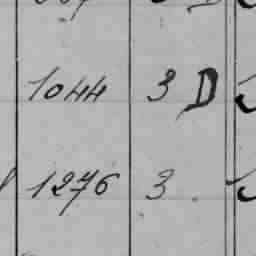 1044 3 D
1276 3